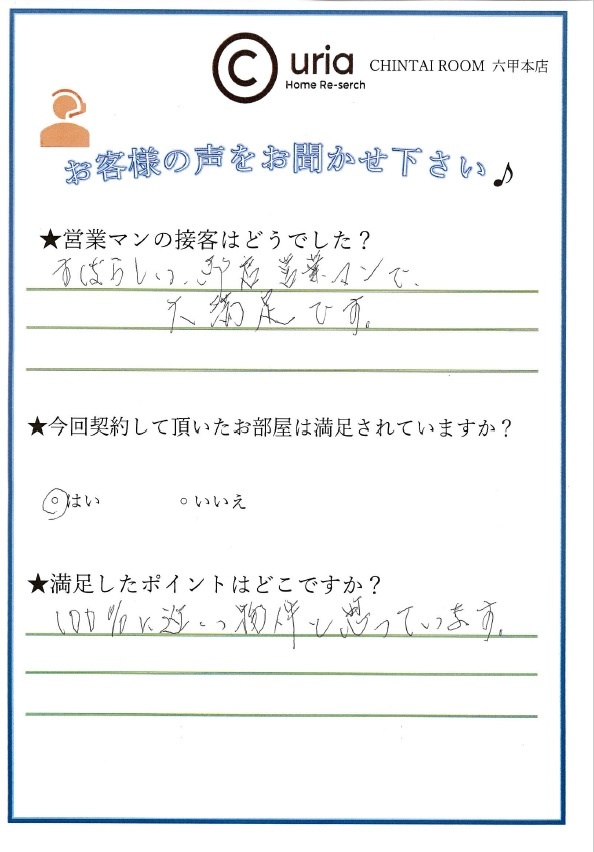 C uria
Home Re-serch
CHINTAI ROOM 六甲本店
お客様の声をお聞かせ下さい♪
★営業マンの接客はどうでした？
すばらしい、営業マンで、
大満足です。
★今回契約して頂いたお部屋は満足されていますか？
○はい ○いいえ
★満足したポイントはどこですか？
100%に近い物件と思っています。